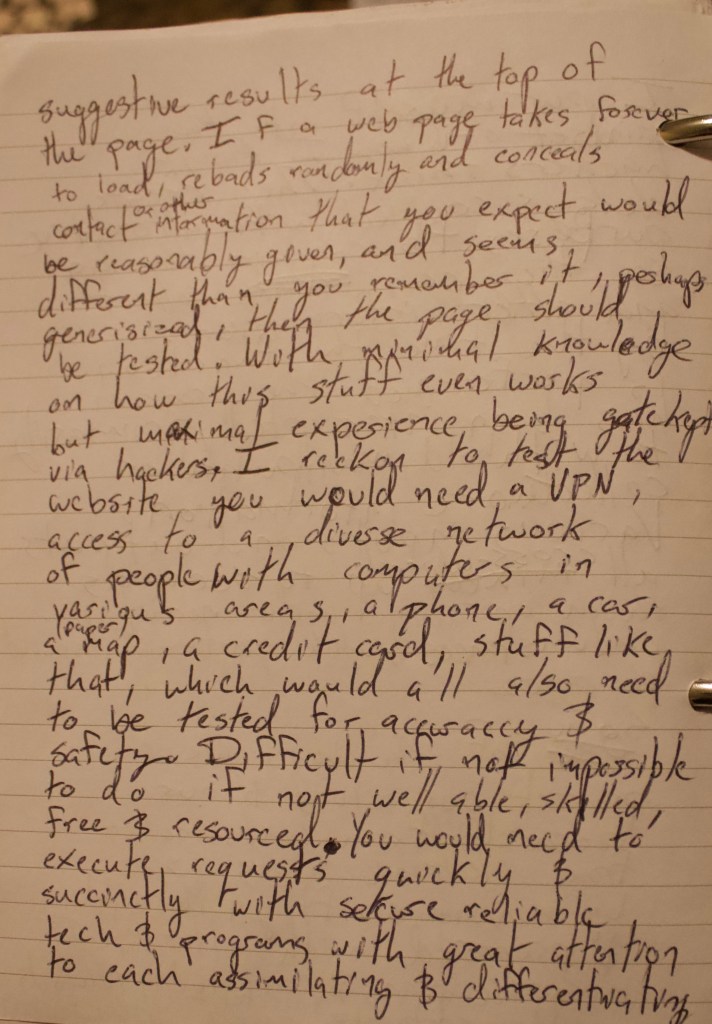 suggestive results at the top of
the page. If a web page takes forever
to load, reloads randomly and conceals
contact or other information that you expect would
be reasonably given, and seems
different than you remember it, perhaps
generisized, then the page should
be tested. With minimal knowledge
on how this stuff even works
but maximal experience being gatekept
via hackers, I reckon to test the
website you would need a VPN,
access to a diverse network
of people with computers in
various areas, a phone, a car,
a (paper) map, a credit card, stuff like
that, which would all also need
to be tested for accuraccy &
safety. Difficult if not impossible
to do if not well able, skilled,
free & resourced. You would need to
execute requests quickly &
succinctly with secure reliable
tech & programs with great attention
to each assimilating & differentiating